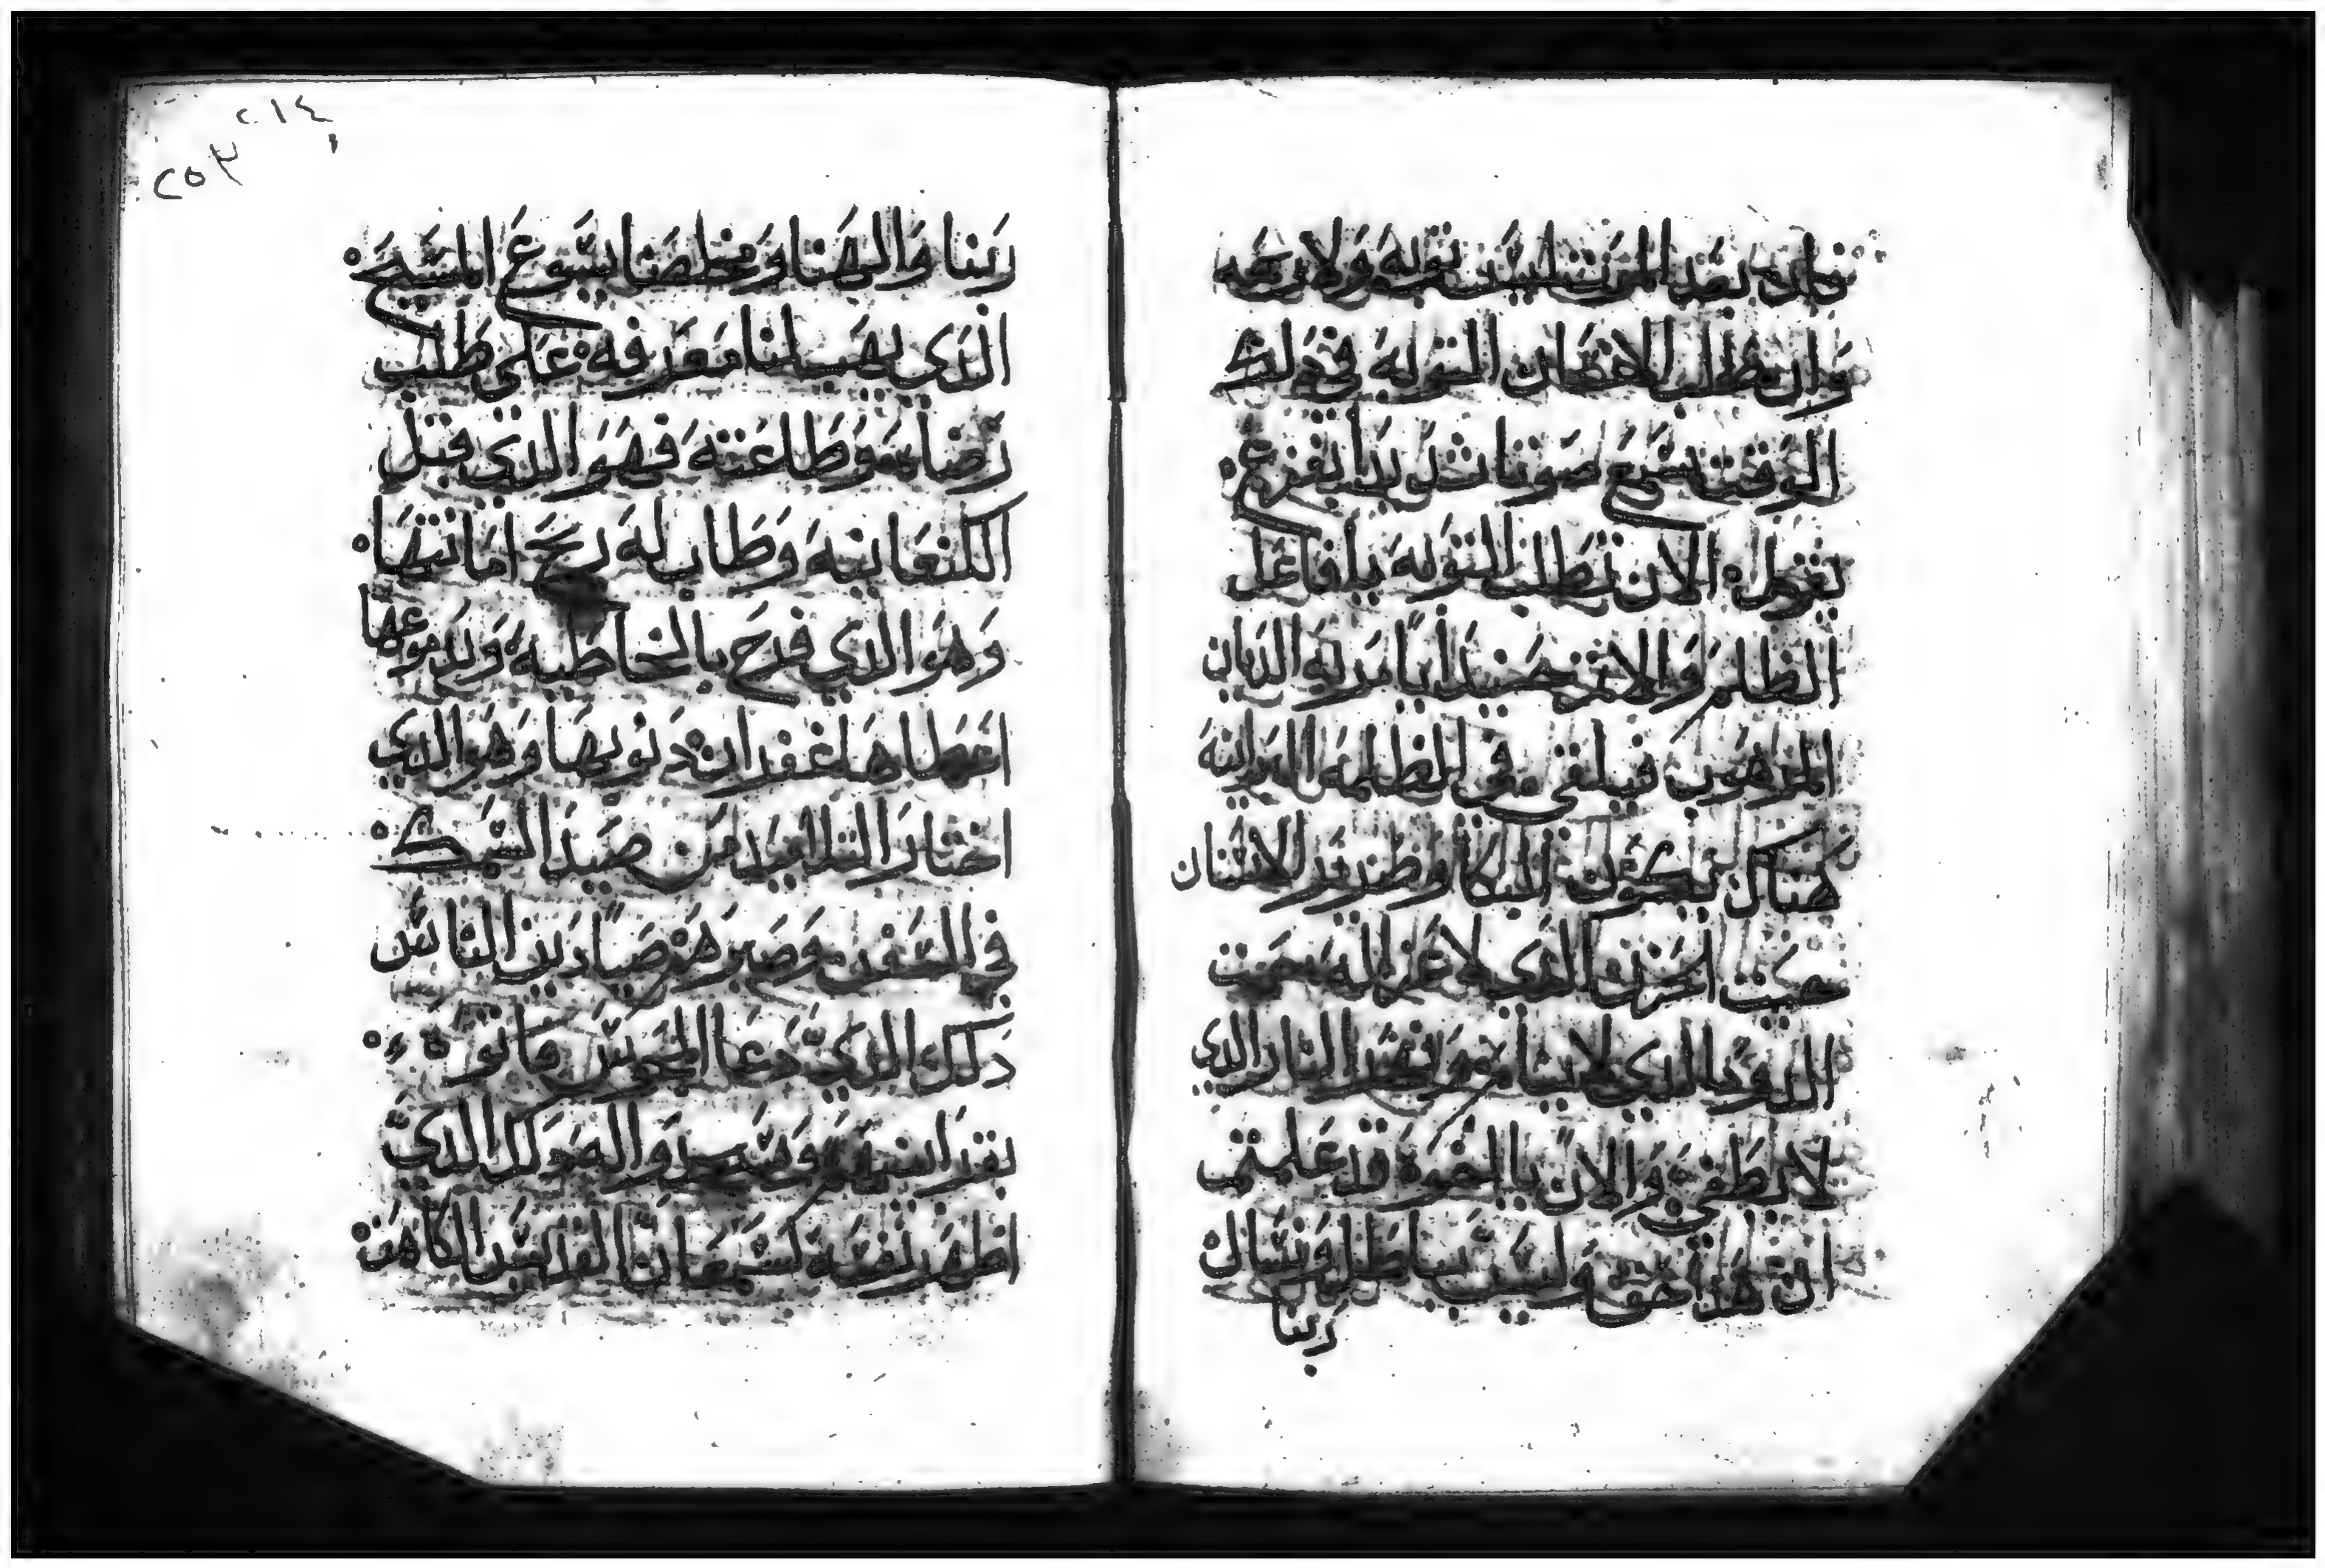 بعد المرت ليس توبه ولا رجعه
وان طال الانسان التوبه في دلك
الوقت يسمع صوتا شديدا بفزع
يقول الان تطلب التوبه يا فاعل
الظلم والاثم حينيدا يامر بو الديان
المرهوب فيلقى في الظلمه البرانيه
هناك يكون البكا وصرير الاسنان
الحزن الدي لا عزا له
الدود الدي لا ينام النار الدي
لا تطفي والان يا اخوه قد علمتم
ان هدا حق وليس باطل ونسال
ربنا
٢١٤
٢٥٣
ربنا والهنا ومخلصنا يسوع المسيح
الدي يهب لنا معرفه على طلب
رضاه وطاعته فهو الدي قبل
الكنعانيه وطاب له ريح امانتها
وهو الدي فرح بالخاطيه وبدموعها
اعطاها غفران دنوبها وهو الدي
اختار التلاميد من صيد السمك
في السفن وصيرهم صيادين الناس
دلك الدي دعا المجوس
الدي
اظهر نفسه لسمعان القديس الكاهن